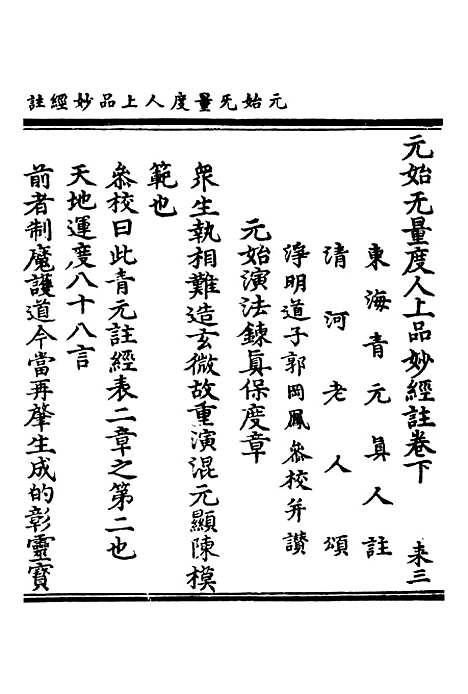 元始旡量度人上品妙經註
元始无量度人上品妙經註卷下　来三
東海青元眞人註
清河老人頌
淨明道子郭岡鳳叅校并讃
元始演法錬眞保度章
衆生執相難造玄微故重演混元顯陳模
範也
叅校曰此青元註經表二章之第二也
天地運度八十八言
前者制魔護道今當再肇生成的彰靈寳